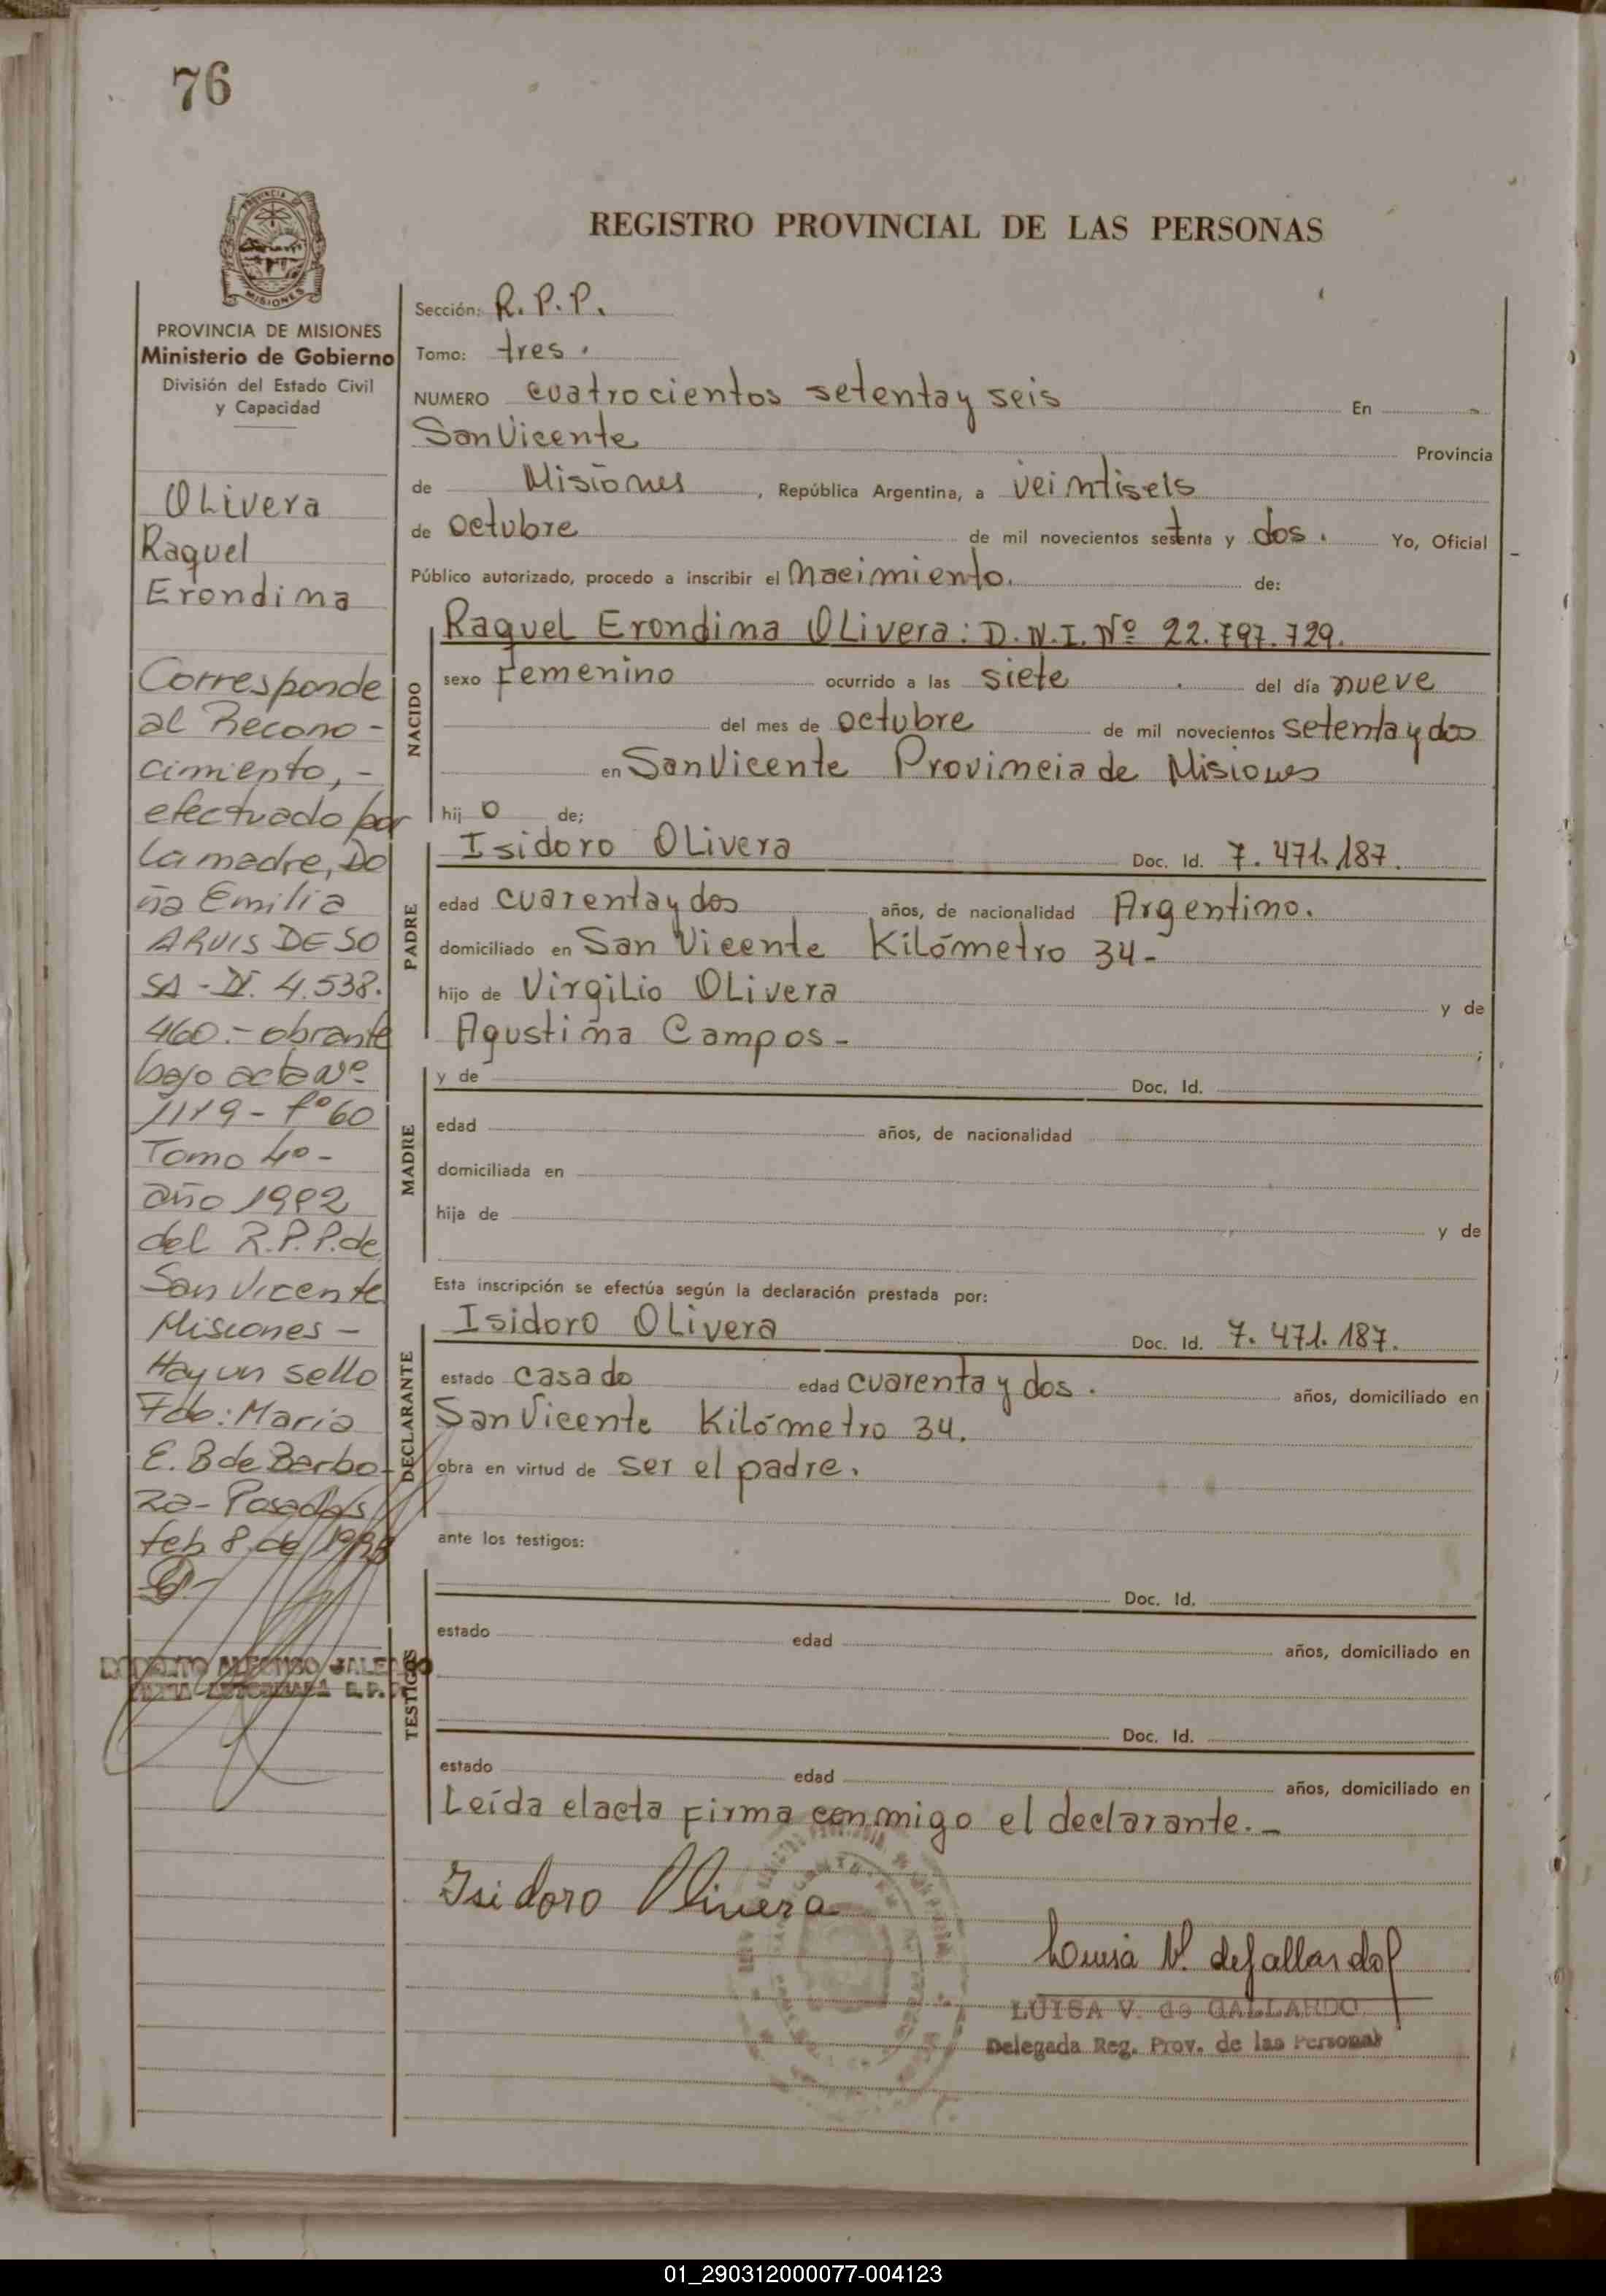 76
PROVINCIA DE MISIONES
Ministerio de Gobierno
División del Estado Civil
y Capacidad
OLivera
Raquel
Erondina
Corresponde
al Recono-
cimiento,-
efectuado por
la madre, Do
ña Emilia
ARUIS DE SO
SA - DI. 4.538.
460.- obrante
bajo acta Nº
fº 60
Tomo 4º-
año 1992
del R.P.P. de
San Vicente
Misiones-
Hay un sello
Fdo: Maria
E. B de Barbo-
za- Posadas
feb. 8 de
REGISTRO PROVINCIAL DE LAS PERSONAS
Sección: R. P. P.
Tomo: tres.
NUMERO cuatrocientos setenta y seis En
San Vicente Provincia
de Misiones, República Argentina, a veintiseis
de octubre de mil novecientos setenta y dos. Yo, Oficial
Público autorizado, procedo a inscribir el nacimiento. de:
NACIDO
Raquel Erondina OLivera: D.N.I. Nº 22.797.729.
sexo Femenino ocurrido a las siete del día nueve
del mes de octubre de mil novecientos setenta y dos
en San Vicente Provincia de Misiones
hij o de;
PADRE
Isidoro OLivera Doc. Id. 7.471.187.
edad cuarenta y dos años, de nacionalidad Argentino.
domiciliado en San Vicente Kilómetro 34-
hijo de Virgilio OLivera y de
Agustina Campos- ;
MADRE
y de Doc. Id.
edad años, de nacionalidad
domiciliada en
hija de y de
Esta inscripción se efectúa según la declaración prestada por:
DECLARANTE
Isidoro OLivera Doc. Id. 7.471.187.
estado casado edad cuarenta y dos. años, domiciliado en
San Vicente Kilómetro 34.
obra en virtud de ser el padre.
ante los testigos:
TESTIGOS
Doc. Id.
estado edad años, domiciliado en
Doc. Id.
estado edad años, domiciliado en
Leída el acta firma conmigo el declarante.-
Isidoro Olivera
Luisa V. de Gallardo
LUISA V. de GALLARDO
Delegada Reg. Prov. de las Personas
01_290312000077-004123